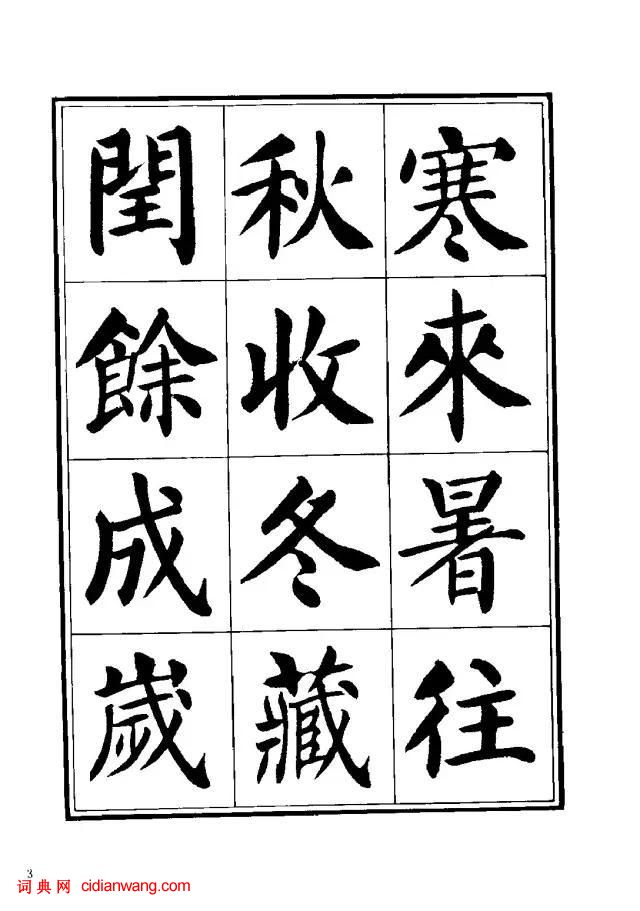 寒來暑往
秋收冬藏
閏餘成歲
3
词典网 cidianwang.com